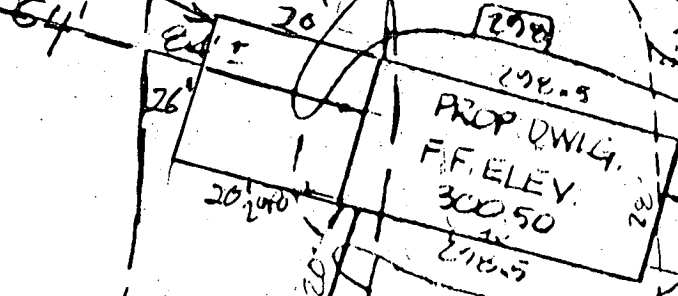 64'
20'
298
298.5
26'
PROP DWLG.
F.F. ELEV.
300.50
28'
20'
298.5
20'